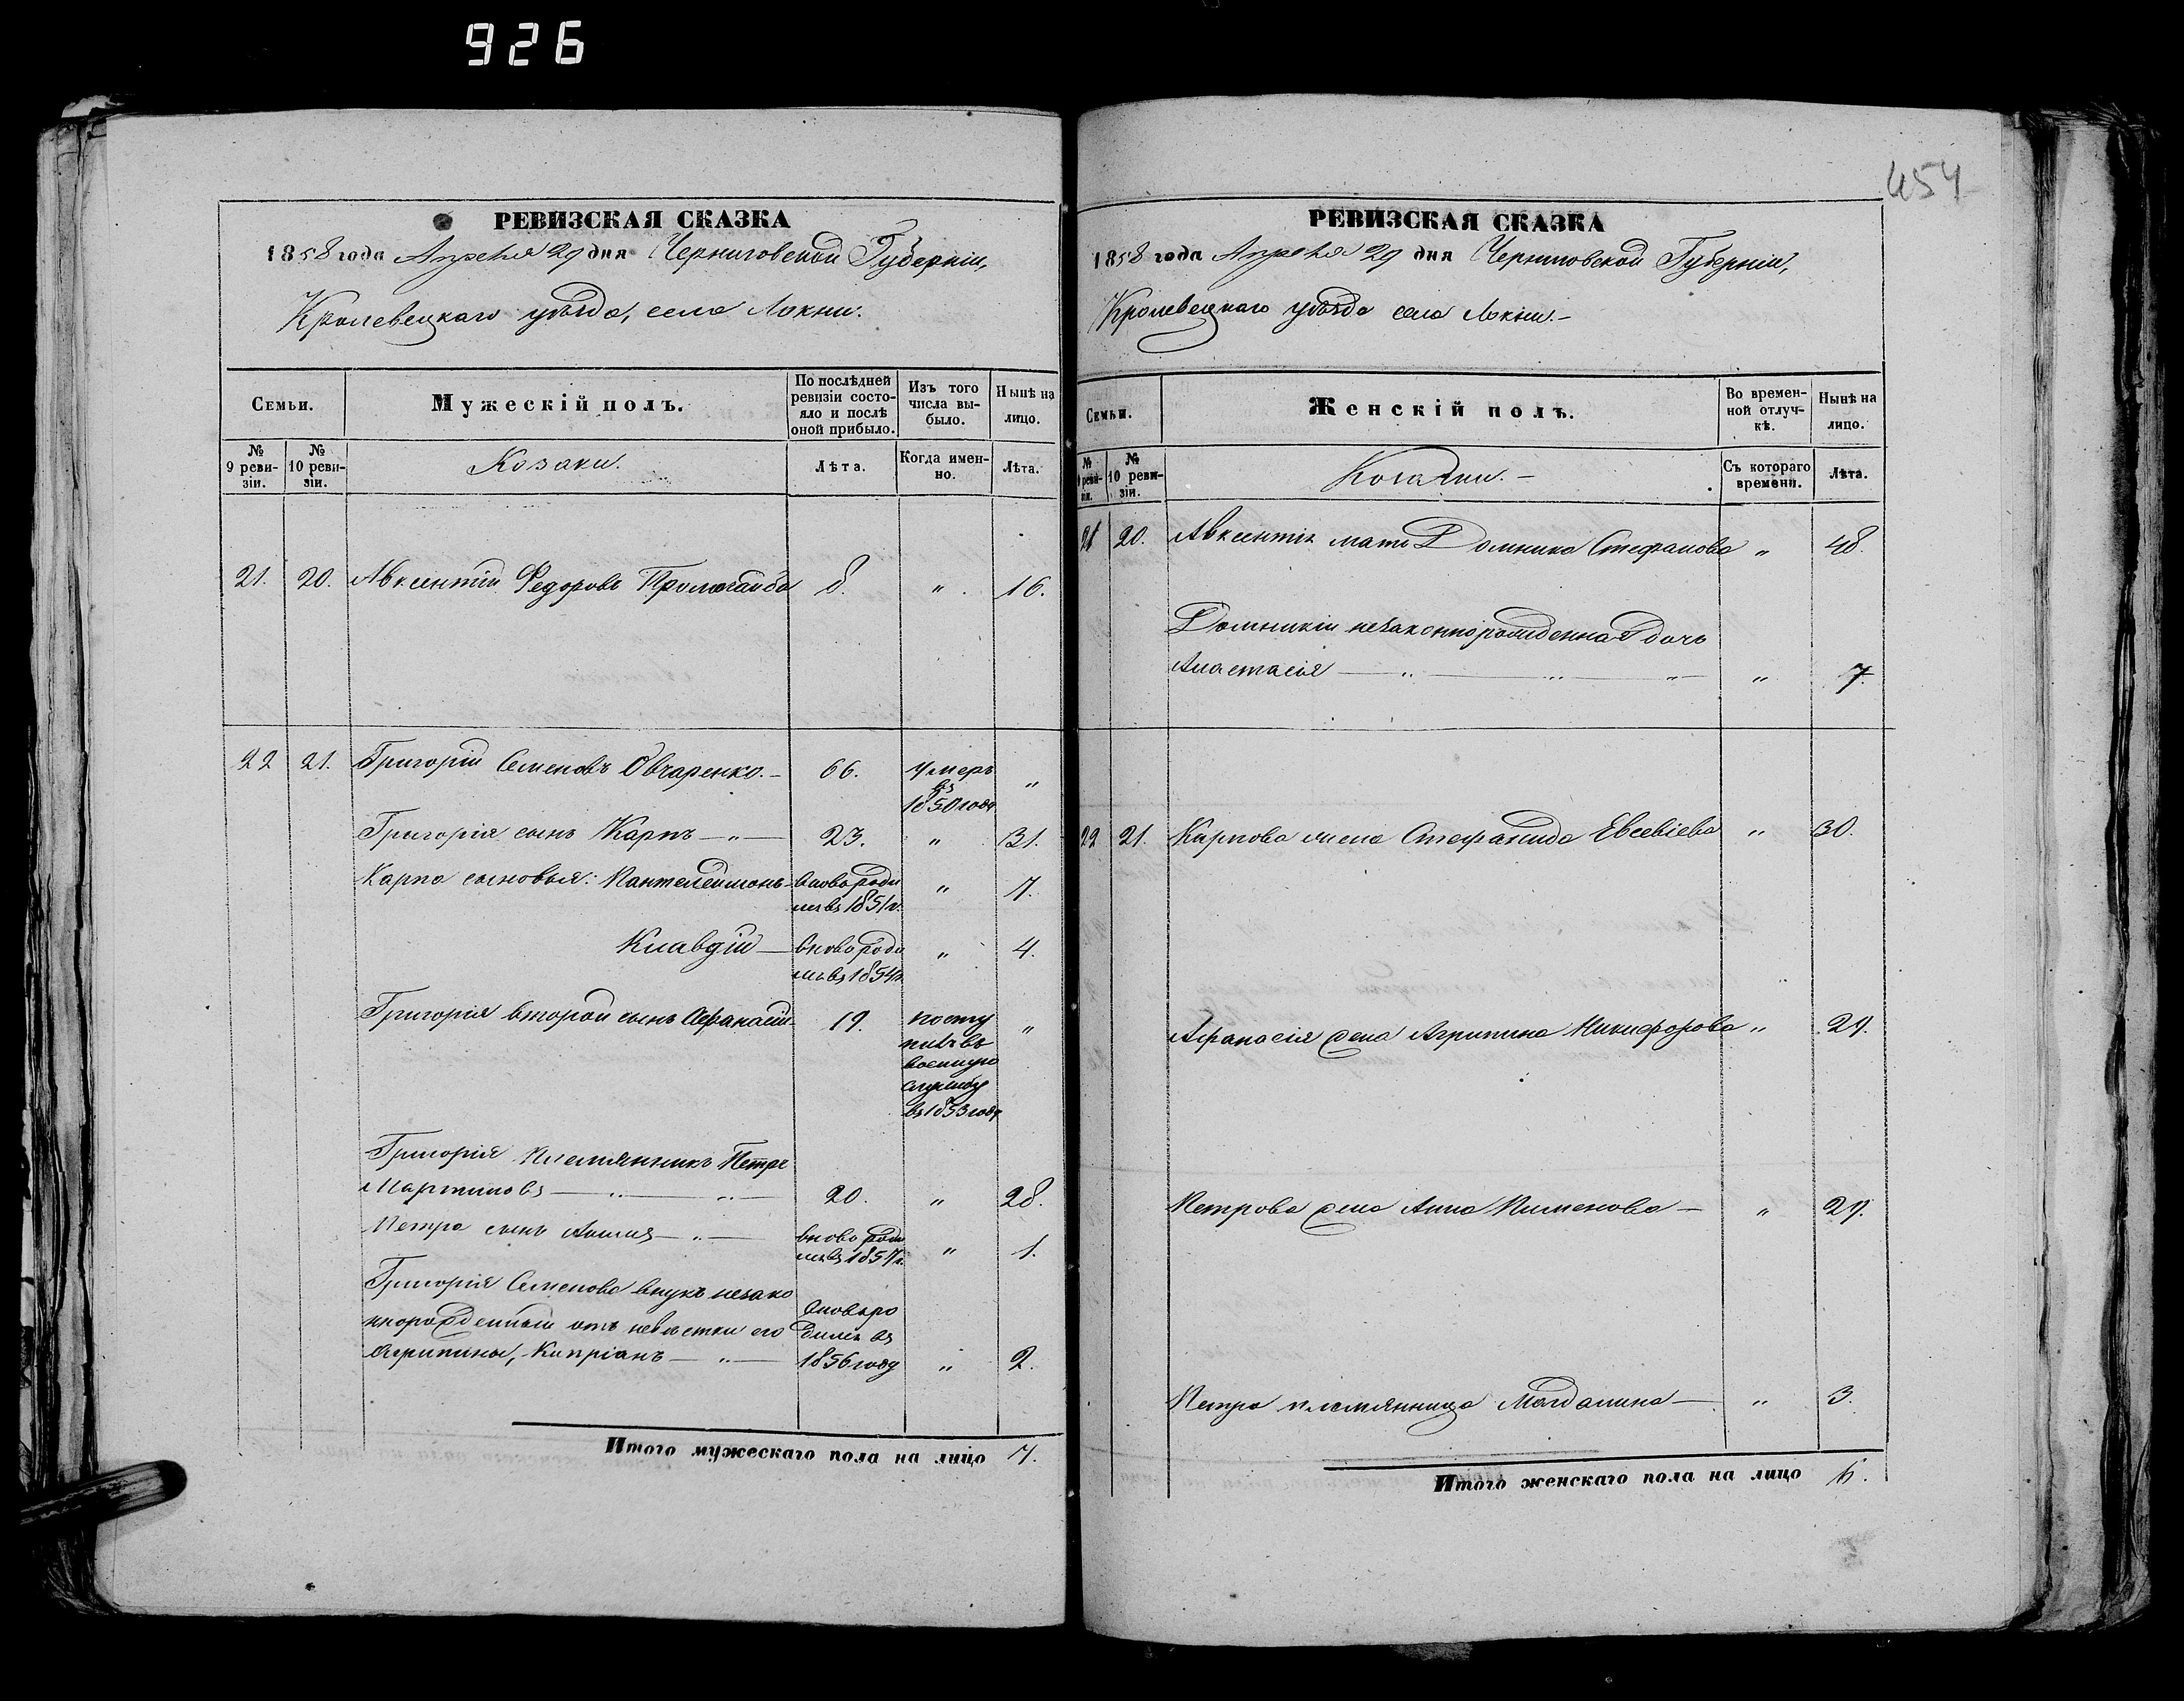 926
454
РЕВИЗСКАЯ СКАЗКА
1858 года Апреля 29 дня Черниговской Губерніи,
Кролевецкаго уѣзда, села Локни.
Семьи.
Мужескій полъ.
По послѣдней ревизіи состояло и послѣ оной прибыло.
Изъ того числа выбыло.
Нынѣ на лицо.
№ 9 ревизіи.
№ 10 ревизіи.
Козаки.
Лѣта.
Когда именно.
Лѣта.
21. 20. Авксентій Федоровъ 8. " 16.
22 21. Григорій Семеновъ Овчаренко. — 66. Умеръ въ 1850 году "
Григорія сынъ Карпъ — " — 23. " 31.
Карпа сыновья: Пантелеимонъ вновь родился въ 1851 г. " 7.
Клавдій — вновь родился въ 1854 г. " 4.
Григорія второй сынъ Афанасій 19. поступилъ въ военную службу въ 1853 году "
Григорія племянникъ Петръ
Мартиновъ — " — " — 20. " 28.
Петра сынъ — " — вновь родился въ 1857 г. " 1.
Григорія Семенова внукъ незако
ннорожденный отъ невестки его
Агрипины, Кипріанъ — " — вновь родился въ 1856 году " 2.
Итого мужескаго пола на лицо 7.
РЕВИЗСКАЯ СКАЗКА
1858 года Апреля 29 дня Черниговской Губерніи,
Кролевецкаго уѣзда села Локни. —
Семьи.
Женскій полъ.
Во временной отлучкѣ.
Нынѣ на лицо.
№ 9 ревизіи.
№ 10 ревизіи.
Козачки. —
Съ котораго времени.
Лѣта.
21 20. Авксентія мать Домника Стефанова " 48.
Домникіи незаконнорожденная дочь
Анастасія — " — " — " — " 7.
22 21. Карпова жена Стефанида Евсевіева " 30.
Афанасія жена Агрипина Никифорова " 27.
Петрова жена Анна Пименова — " 27.
Петра племянница Магдалина — " 3.
Итого женскаго пола на лицо 6.